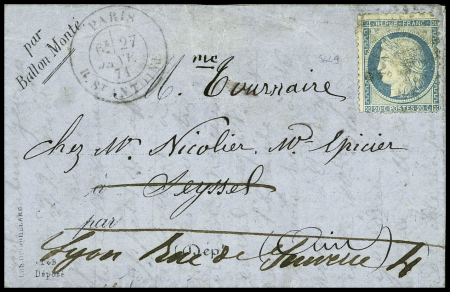 par
Ballon Monté
PARIS
27
JANV.
71
R. ST ANTOINE
REPUB. FRANC.
20 C. POSTES 20 C.
Mme Tournaire
chez Mr. Nicolier, Md. Epicier
à Seyssel
par
(Ain)
Lyon Rue de 4
Déposé